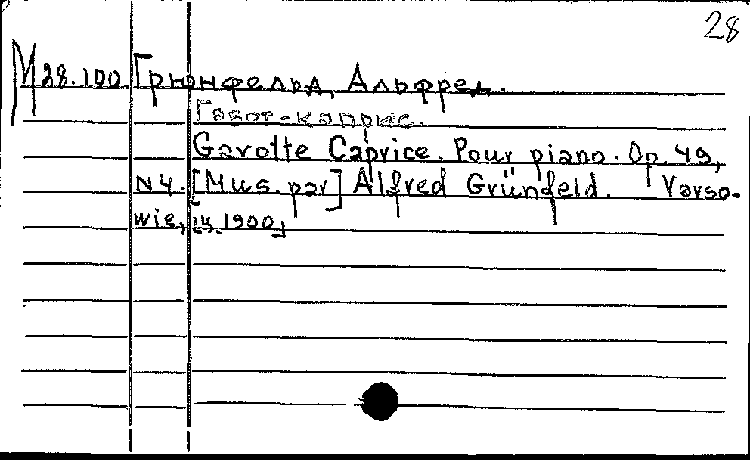 28
М 28.100. Грюнфельд, Альфред.
Гавот-каприс.
Gavotte Caprice. Pour piano. Op. 49,
N 4. [Mus. par] Alfred Grünfeld. Varso-
wie, 1900,